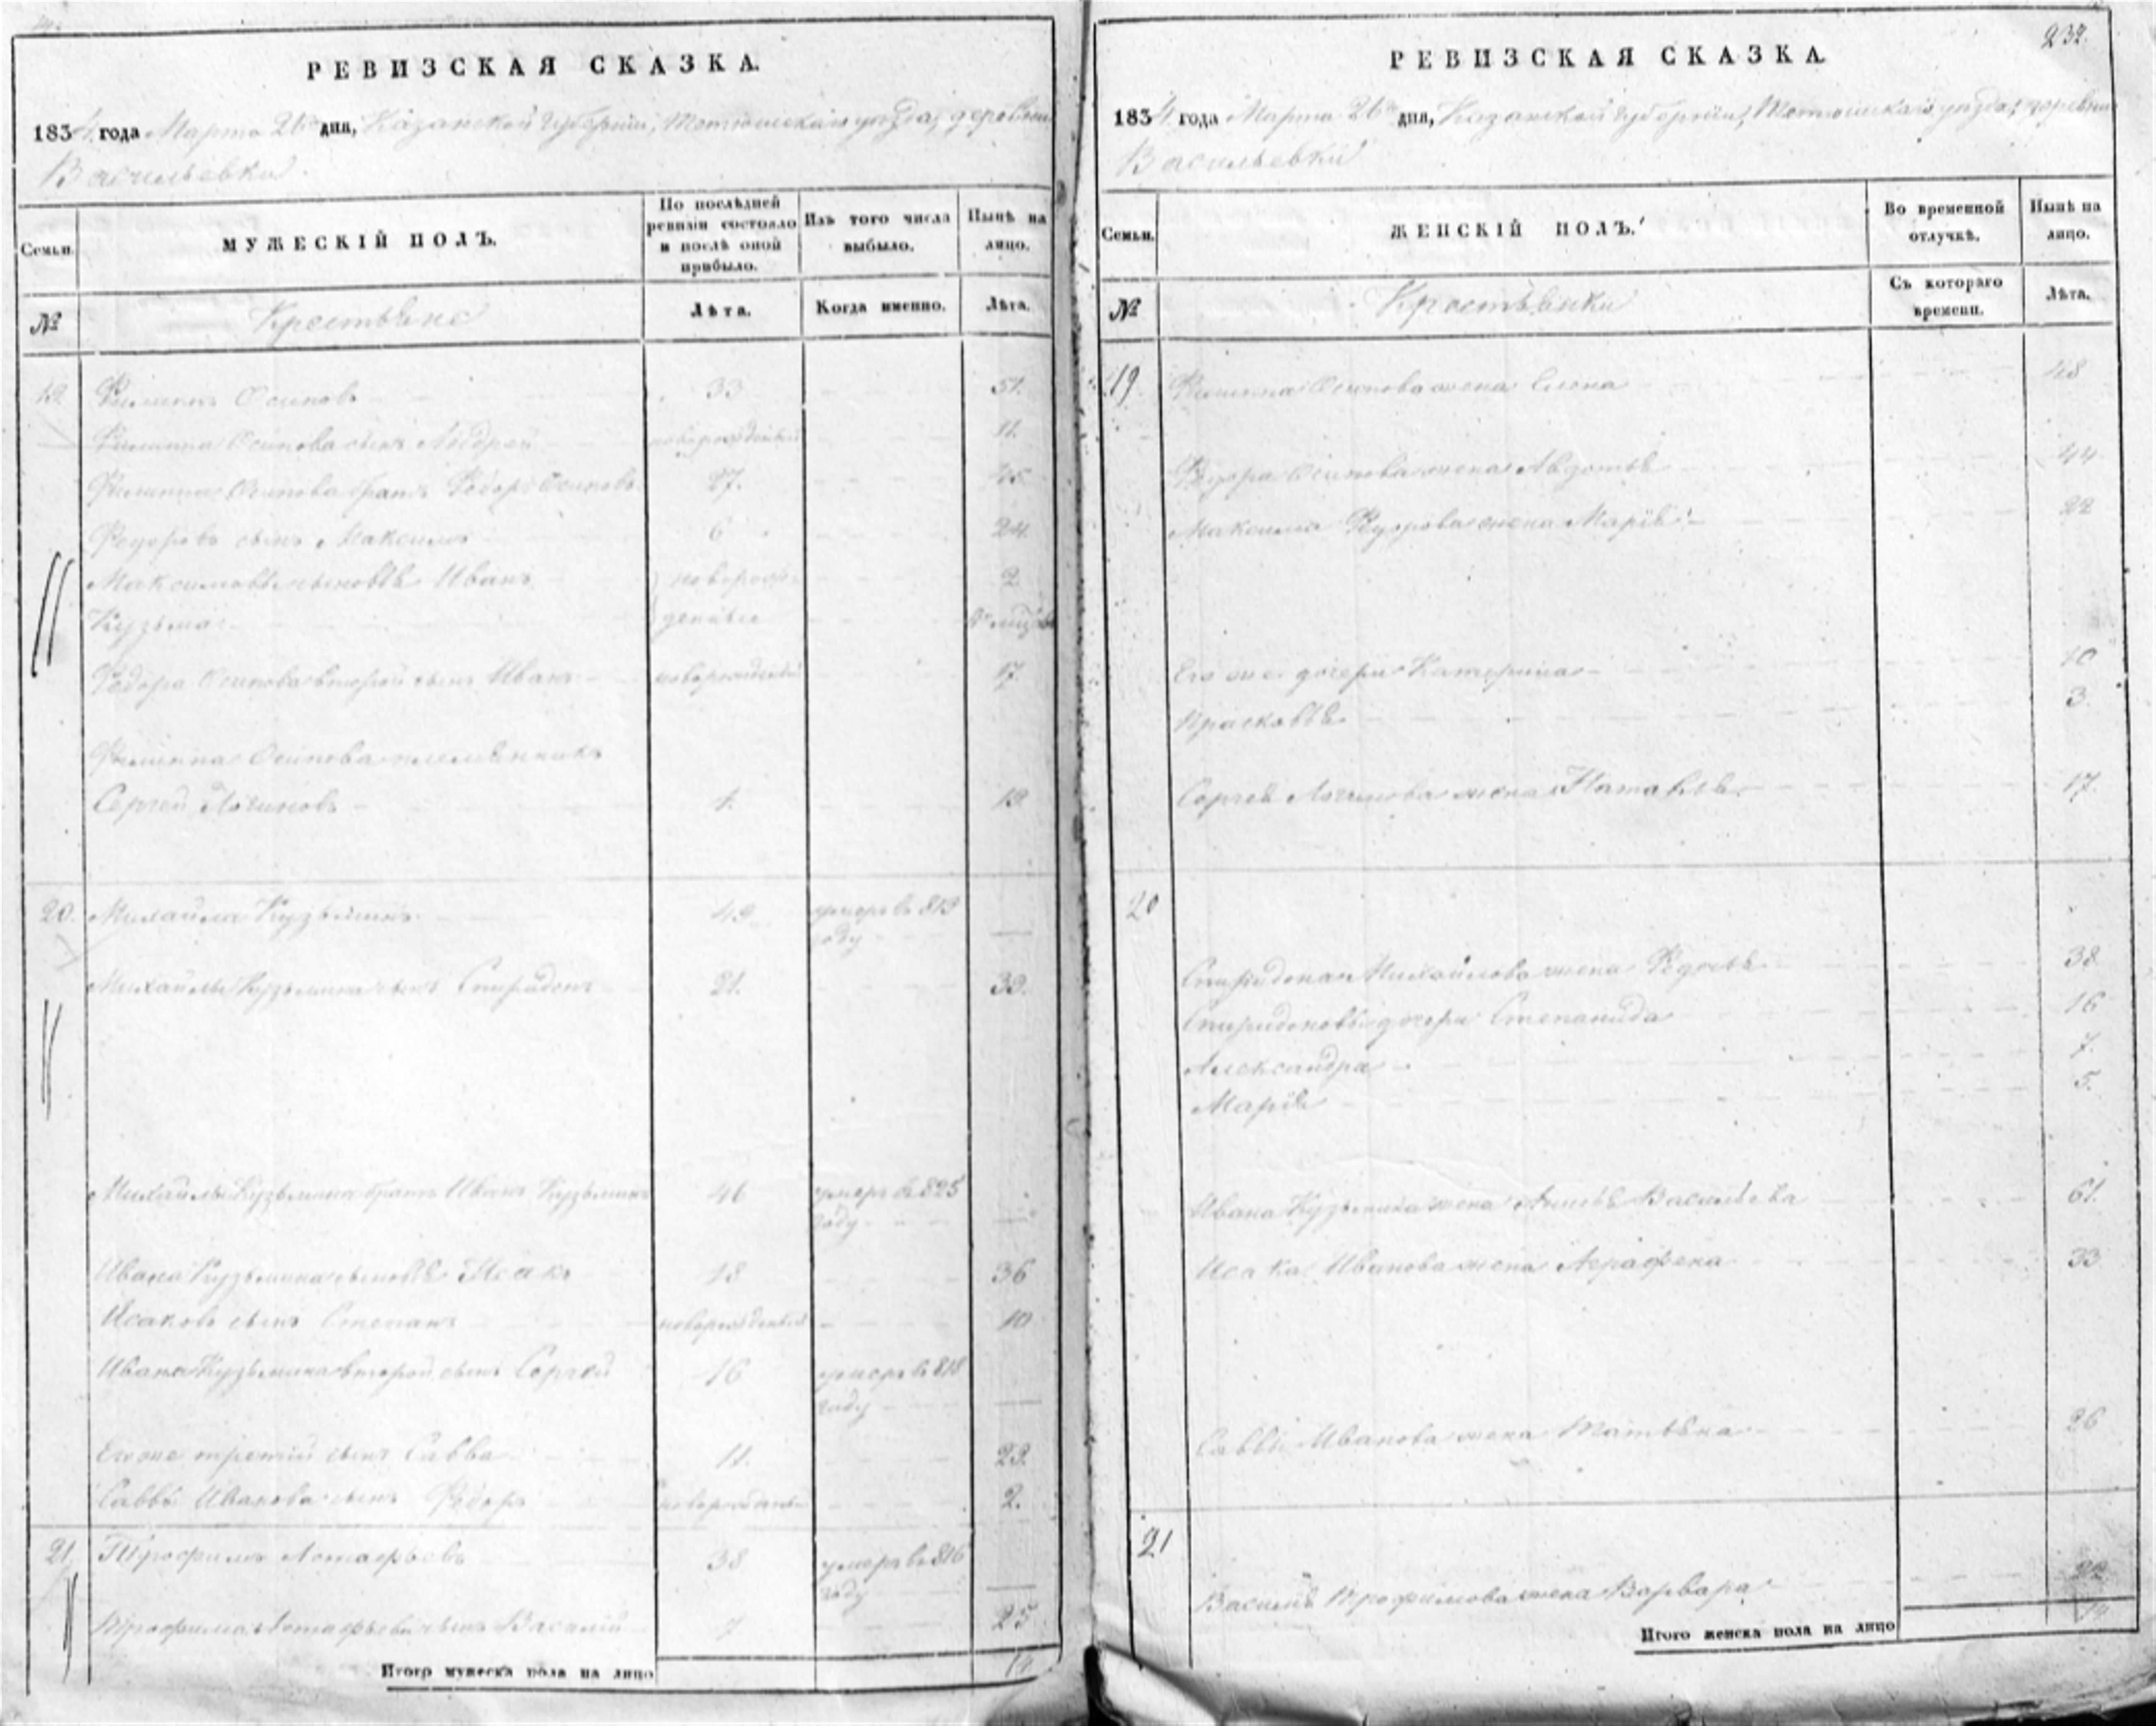 РЕВИЗСКАЯ СКАЗКА.
1834 года Марта 26го дня, Казанской Губернии, Тетюшскаго уезда, деревни
Васильевки
Семьи.
МУЖЕСКІЙ ПОЛЪ.
По послѣдней ревизіи состояло и послѣ оной прибыло.
Изъ того числа выбыло.
Нынѣ на лицо.
№
Крестьяне
Лѣта.
Когда именно.
Лѣта.
19. Филиппъ Осиповъ 33 51.
Филиппа Осипова сынъ Андрей новорожденный 11.
Филиппа Осипова братъ Федоръ Осиповъ 27. 45
Федоровъ сынъ Максимъ 6 24
Максимовы сыновья Иванъ новорож- 2
Кузьма денные
Федора Осипова второй сынъ Иванъ новорожденный 17.
Филиппа Осипова племянникъ
Сергей Логиновъ 1. 19
20. Михайла Кузьминъ 49 умеръ в 819
году
Михайлы Кузьмина сынъ Спиридонъ 21. 39.
Михайлы Кузьмина братъ Иванъ Кузьминъ 46 умеръ в 825
году
Ивана Кузьмина сыновья Исакъ 18 36
Исаковъ сынъ Степанъ новорожденный 10
Ивана Кузьмина второй сынъ Сергей 16 умеръ в 818
году
Его же третій сынъ Савва 11. 29.
Саввы Иванова сынъ Федоръ новорожденный 2.
21. Трофимъ Астафьевъ 38 умеръ в 816
году
Трофима Астафьева сынъ Василій 7 25
Итого мужеска пола на лицо
232.
РЕВИЗСКАЯ СКАЗКА.
1834 года Марта 26го дня, Казанской Губернии, Тетюшскаго уезда, деревни
Васильевки
Семьи.
ЖЕНСКІЙ ПОЛЪ.
Во временной отлучкѣ.
Нынѣ на лицо.
№
Крестьянки
Съ котораго времени.
Лѣта.
19. Филиппа Осипова жена Елена 48
Федора Осипова жена Авдотья 44
Максима Федорова жена Марія 22
Его же дочери Катерина 10
Прасковья 3.
Сергея Логинова жена Наталья 17.
20
Спиридона Михайлова жена Федосья 38
Спиридоновы дочери Степанида 16
Александра 7.
Марія 5.
Ивана Кузьмина жена Васильева 61.
Исака Иванова жена Аграфена 33
Саввы Иванова жена Татьяна 26
21
Василія Трофимова жена Варвара 22
Итого женска пола на лицо